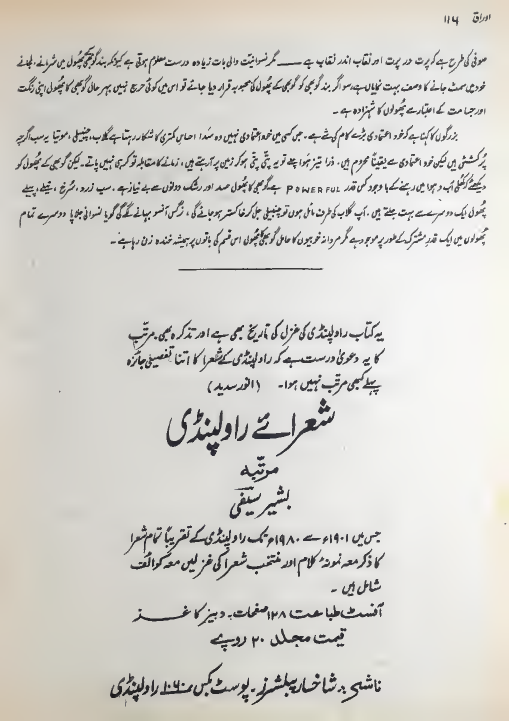 اوراق ۱۱۶
صوفی کی طرح ہے کہ پرت در پرت اور نقاب اندر نقاب ہے — مگر نسوانیت والی بات زیادہ درست معلوم ہوتی ہے کیونکہ بند گوبھی پھول میں شرمانے، لجانے
خود میں سمٹ جانے کا وصف بہت نمایاں ہے، سو اگر بند گوبھی کو گوبھی کے پھول کی محبوبہ قرار دیا جائے تو اس میں کوئی حرج نہیں بہر حال گوبھی کا پھول اپنی رنگت
اور جسامت کے اعتبار سے پھولوں کا شہزادہ ہے۔
بزرگوں کا کہنا ہے کہ خود اعتمادی بڑے کام کی شے ہے۔ جس کسی میں خود اعتمادی نہیں وہ سدا احساسِ کمتری کا شکار رہتا ہے گلاب، چنبیلی، موتیا یہ سب اگرچہ
پُرکشش ہیں لیکن خود اعتمادی سے یقیناً محروم ہیں۔ ذرا تیز ہوا چلے تو یہ پتی پتی ہو کر زمین پر آ رہتے ہیں، زمانے کا مقابلہ تو کر ہی نہیں پاتے۔ لیکن گوبھی کے پھول کو
دیکھئے کھلی آب و ہوا میں رہنے کے باوجود کس قدر POWERFUL ہے گوبھی کا پھول حسد اور رشک دونوں سے بے نیاز ہے۔ سب زرد، سُرخ، نیلے، پیلے
پھول ایک دوسرے سے بہت جلتے ہیں۔ آپ گلاب کی طرف مائل ہوں تو چنبیلی جل کر خاکستر ہو جائے گی، نرگس آنسو بہانے لگے گی گویا نسوانی جلاپا دوسرے تمام
پھولوں میں ایک قدرِ مشترک کے طور پر موجود ہے مگر مردانہ خوبیوں کا حامل گوبھی کا پھول اس قسم کی باتوں پر ہمیشہ خندہ زن رہا ہے۔
یہ کتاب راولپنڈی کی غزل کی تاریخ بھی ہے اور تذکرہ بھی۔ مرتّب
کا یہ دعویٰ درست ہے کہ راولپنڈی کے شعرا کا اتنا تفصیلی جائزہ
پہلے کبھی مرتّب نہیں ہوا۔ (انور سدید)
شعرائے راولپنڈی
مرتّبہ
بشیر سیفی
جس میں ۱۹۰۱ء سے ۱۹۸۰ء تک راولپنڈی کے تقریباً تمام شعرا
کا ذکر معہ نمونۂ کلام اور منتخب شعرا کی غزلیں معہ کوائف
شامل ہیں۔
آفسٹ طباعت ۱۲۸ صفحات۔ دبیز کاغذ
قیمت مجلد ۲۰ روپے
ناشر: شاخسار پبلشرز۔ پوسٹ بکس نمبر ۱۰۶۰ راولپنڈی